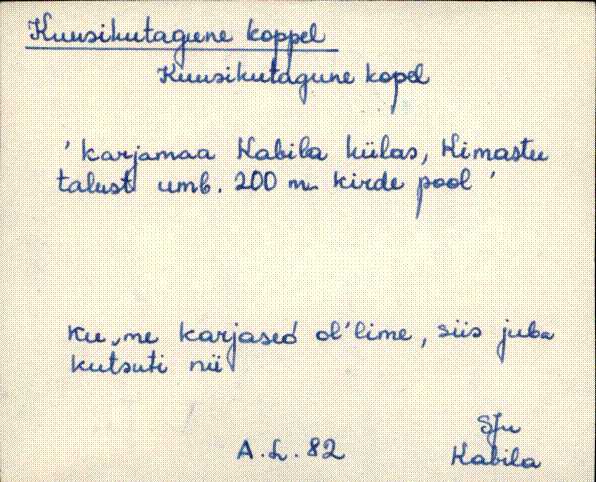 Kuusikutagune koppel
Kuusikutagune kopel
'karjamaa Kabila külas, Kimastu
talust umb. 200 m kirde pool'
Ku‿me karjased ol'lime, siis juba
kutsuti nii
SJu
A.L. 82
Kabila